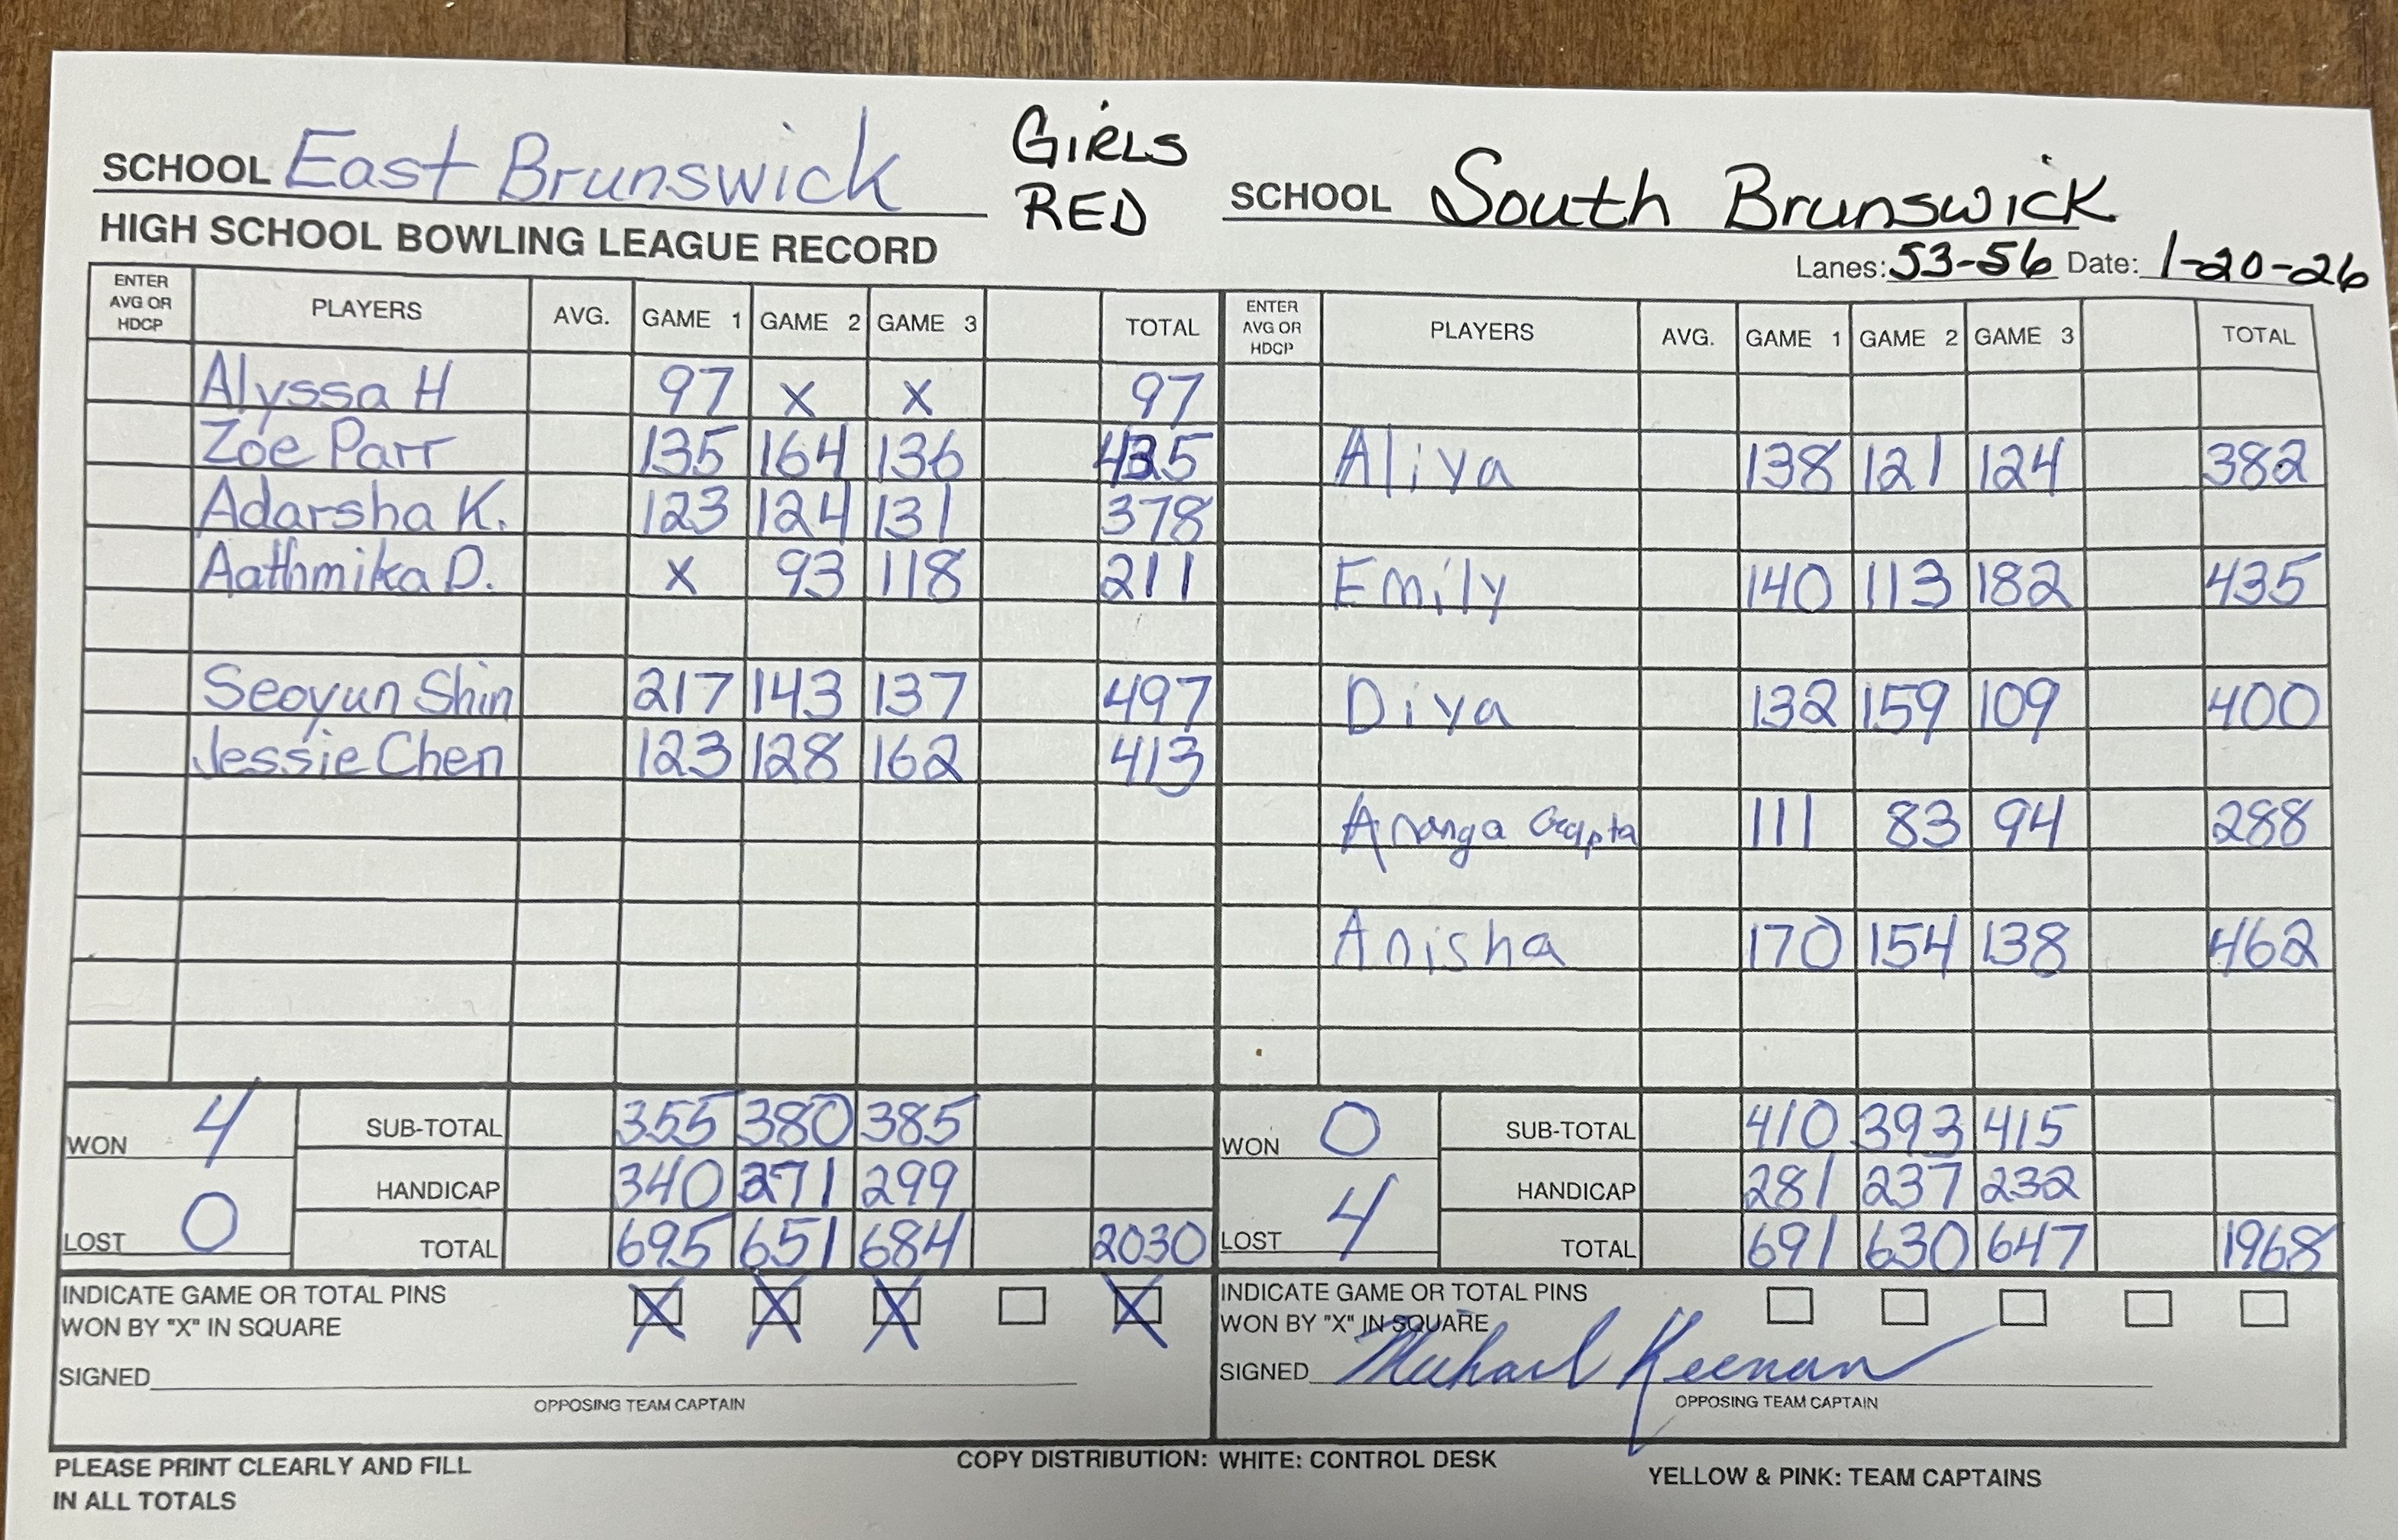 GIRLS
RED
SCHOOL East Brunswick
SCHOOL South Brunswick
HIGH SCHOOL BOWLING LEAGUE RECORD
Lanes: 53-56 Date: 1-20-26
ENTER AVG OR HDCP PLAYERS AVG. GAME 1 GAME 2 GAME 3 TOTAL ENTER AVG OR HDCP PLAYERS AVG. GAME 1 GAME 2 GAME 3 TOTAL
Alyssa H 97 X X 97
Zoe Parr 135 164 136 435 Aliya 138 121 124 382
Adarsha K. 123 124 131 378
Aathmika D. X 93 118 211 Emily 140 113 182 435
Seoyun Shin 217 143 137 497 Diya 132 159 109 400
Jessie Chen 123 128 162 413
Ananga Gupta 111 83 94 288
Anisha 170 154 138 462
WON 4 SUB-TOTAL 355 380 385 WON 0 SUB-TOTAL 410 393 415
HANDICAP 340 271 299 HANDICAP 281 237 232
LOST 0 TOTAL 695 651 684 2030 LOST 4 TOTAL 691 630 647 1968
INDICATE GAME OR TOTAL PINS X X X X INDICATE GAME OR TOTAL PINS
WON BY "X" IN SQUARE WON BY "X" IN SQUARE
SIGNED SIGNED Michael Keenan
OPPOSING TEAM CAPTAIN OPPOSING TEAM CAPTAIN
PLEASE PRINT CLEARLY AND FILL COPY DISTRIBUTION: WHITE: CONTROL DESK YELLOW & PINK: TEAM CAPTAINS
IN ALL TOTALS